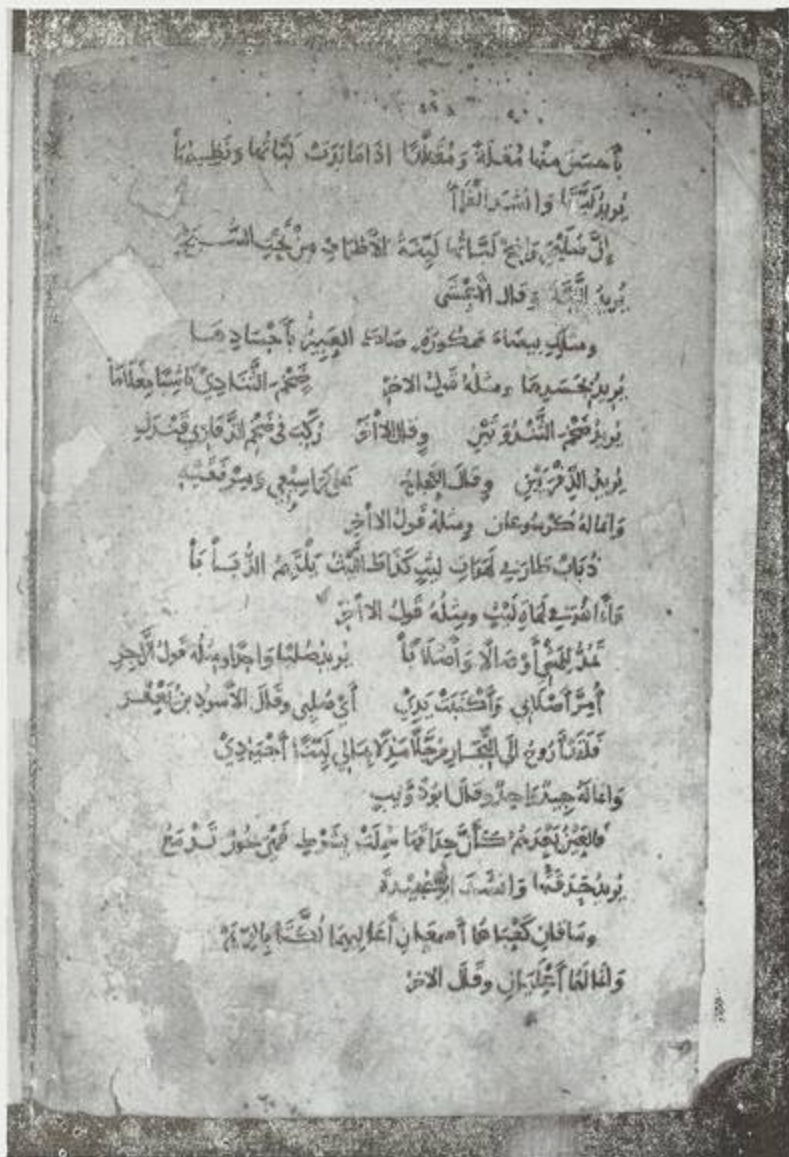 بأحسن منها مقلة ومقلدا اذا ما بدت لباتها ونظيمها
يريد لبتها وانشد الفراء
لباتها لينة الأطراف من تحت
يريد اللبة وقال الأعشى
ومثلك بيضاء ممكورة صاك العبير بأجسادها
يريد بجسدها ومثله قول الاخر ضخم الثنادى ناشئا مغلابا
يريد ضخم الثندوتين وقال الاخر ركب في ضخم الذفارى قندل
يريد الذفريين وقال العجاج على كراسيعي ومرفقيه
وانما له كرسوعان ومثله قول الاخر
ذباب طار في لهوات ليث كذاك الليث يلتهم الذبابا
فانما هو في لهاة ليث ومثله قول الاخر
تمد للمشي أوصالا وأصلابا يريد صلبا واحدا ومثله قول الراجز
أصلابي وأكنبت يدي أي صلبي وقال الأسود بن يعفر
فلقد أروح الى التجار مرجلا مذلا بمالي لينا أجيادي
وانما له جيد واحد وقال ابو ذؤيب
فالعين بعدهم كأن حداقها سملت بشوك فهي عور تدمع
يريد حدقتها وانشد
وساقان كعباهما أصمعان أعاليهما لكتا بالديم
وانما لهما أعليان وقال الاخر